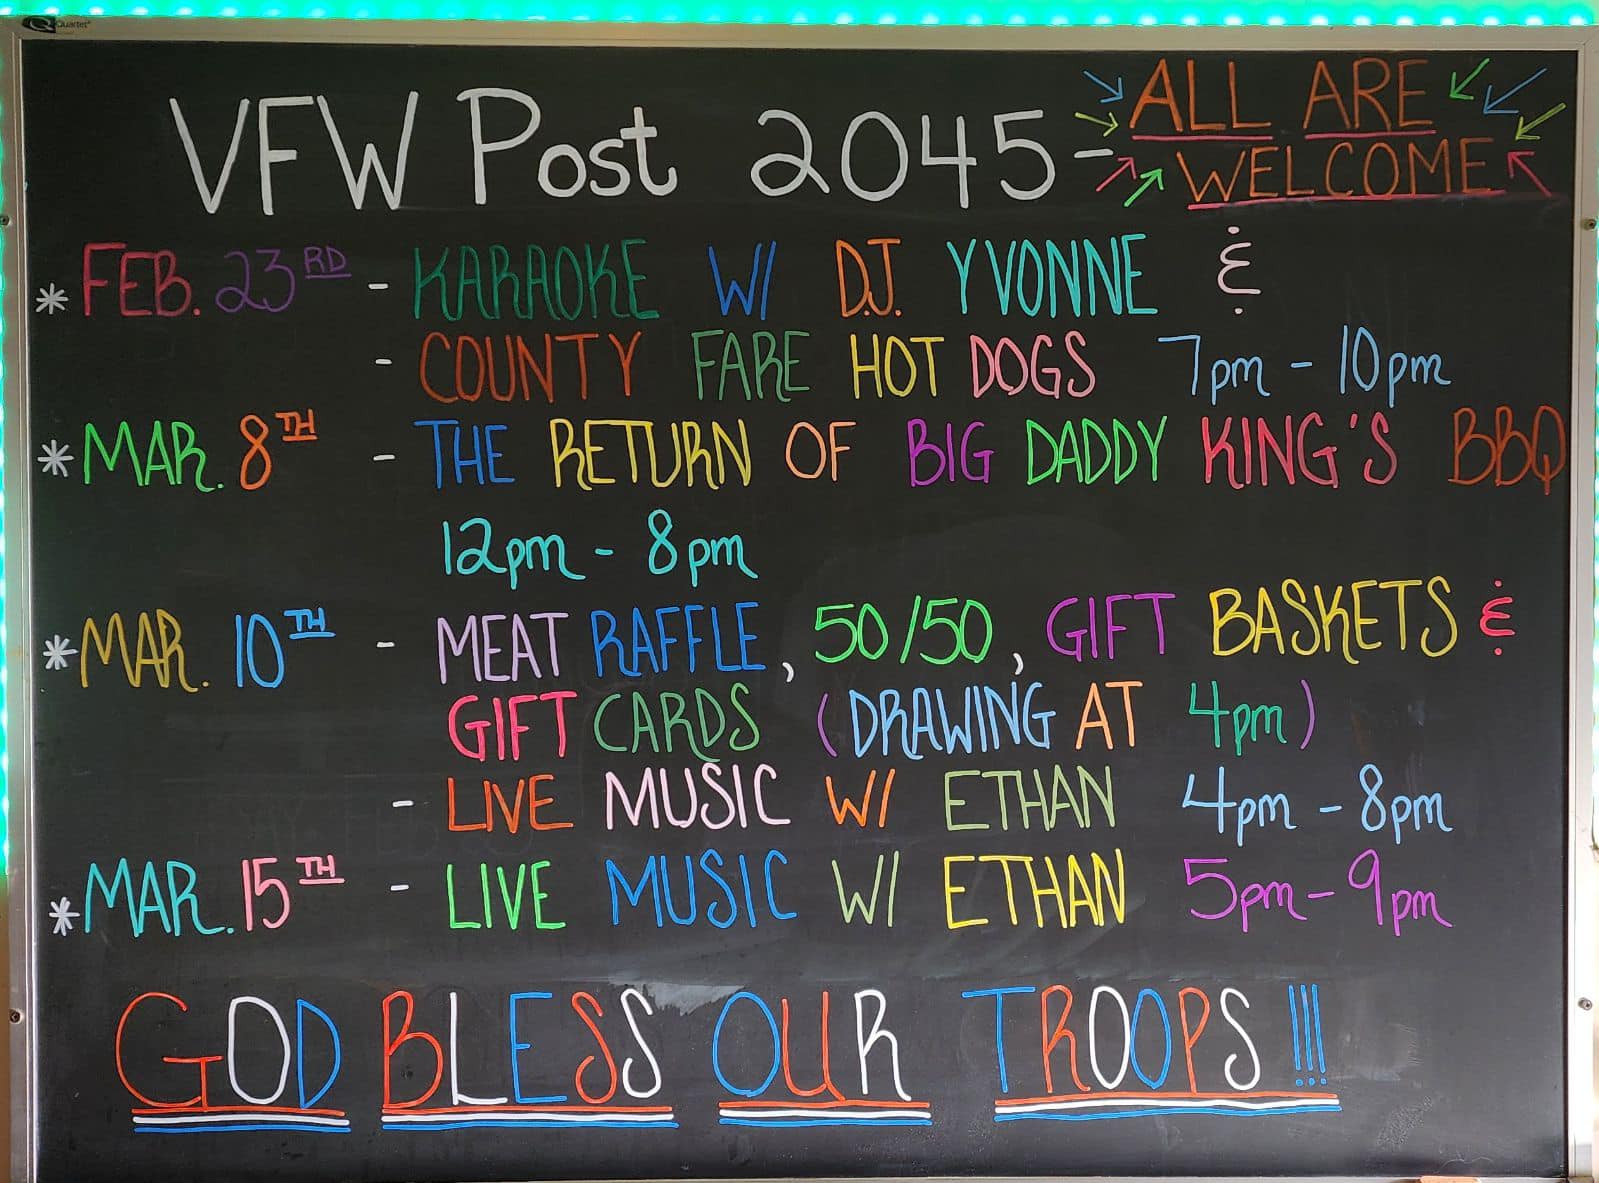 Quartet
VFW Post 2045 - ALL ARE
WELCOME
* FEB. 23RD - KARAOKE W/ D.J. YVONNE &
- COUNTY FARE HOT DOGS 7pm - 10pm
* MAR. 8TH - THE RETURN OF BIG DADDY KING'S BBQ
12pm - 8pm
* MAR. 10TH - MEAT RAFFLE, 50/50, GIFT BASKETS &
GIFT CARDS (DRAWING AT 4pm)
- LIVE MUSIC W/ ETHAN 4pm - 8pm
* MAR. 15TH - LIVE MUSIC W/ ETHAN 5pm - 9pm
GOD BLESS OUR TROOPS!!!